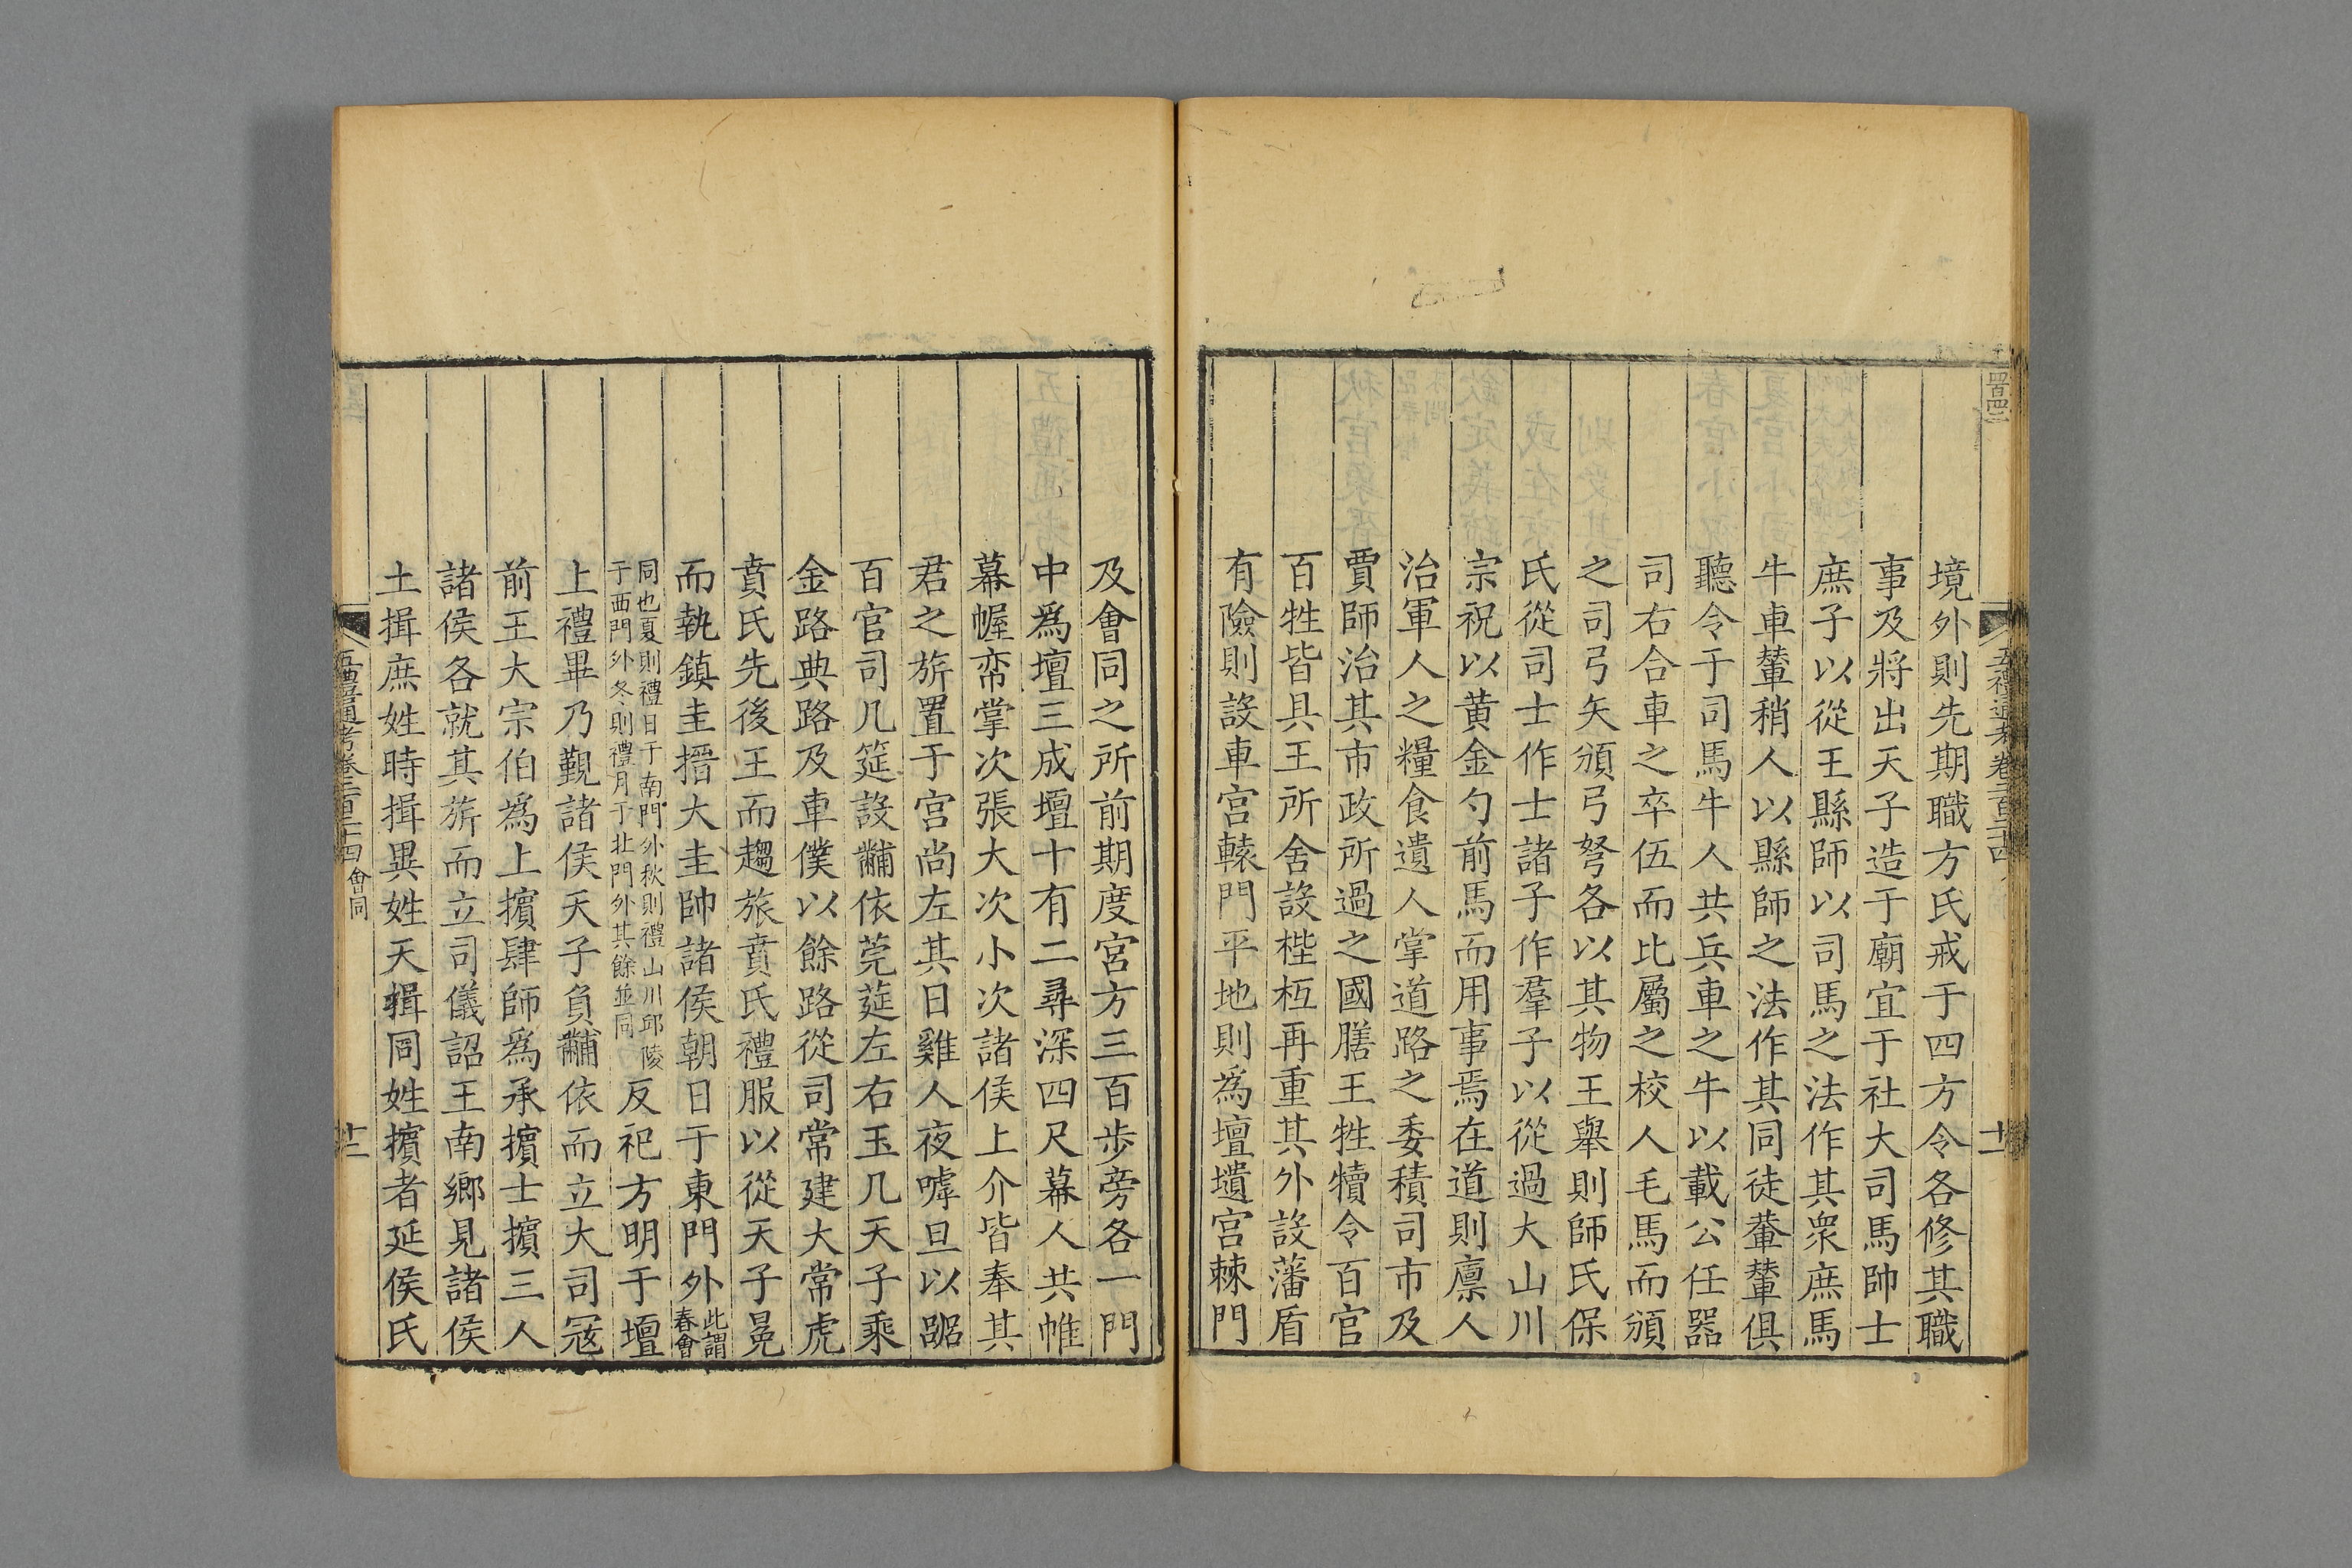 境外則先期職方氏戒于四方令各修其職
事及將出天子造于廟宜于社大司馬帥士
庶子以從王縣師以司馬之法作其眾庶馬
牛車輦稍人以縣師之法作其同徒輂輦俱
聽令于司馬牛人共兵車之牛以載公任器
司右合車之卒伍而比屬之校人毛馬而頒
之司弓矢頒弓弩各以其物王舉則師氏保
氏從司士作士諸子作羣子以從過大山川
宗祝以黄金勺前馬而用事焉在道則廪人
治軍人之糧食遺人掌道路之委積司市及
賈師治其市政所過之國膳王牲犢令百官
百牲皆具王所舍設梐枑再重其外設藩盾
有險則設車宫轅門平地則為壇壝宫棘門
五禮通考卷二百二十四
十一
及會同之所前期度宫方三百步旁各一門
中爲壇三成壇十有二尋深四尺幕人共帷
幕幄帟掌次張大次小次諸侯上介皆奉其
君之旂置于宫尚左其日雞人夜嘑旦以嘂
百官司几筵設黼依莞筵左右玉几天子乘
金路典路及車僕以餘路從司常建大常虎
賁氏先後王而趨旅賁氏禮服以從天子冕
而執鎮圭搢大圭帥諸侯朝日于東門外此謂春會
同也夏則禮日于南門外秋則禮山川邱陵于西門外冬則禮月于北門外其餘並同反祀方明于壇
上禮畢乃覲諸侯天子負黼依而立大司寇
前王大宗伯爲上擯肆師爲承擯士擯三人
諸侯各就其旂而立司儀詔王南鄉見諸侯
土揖庶姓時揖異姓天揖同姓擯者延侯氏
五禮通考卷二百二十四 會同
十二